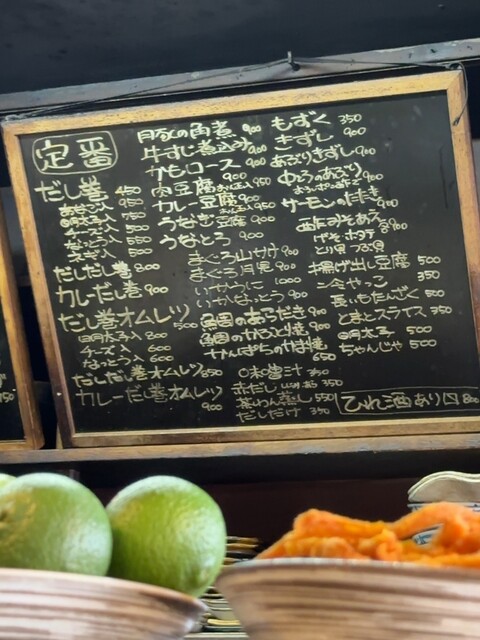 定番
だし巻 450
チーズ入 550
なっとう入 550
ネギ入 550
だしだし巻 800
カレーだし巻 900
だし巻オムレツ 500
明太子入 800
チーズ入 600
なっとう入 600
だしだし巻オムレツ 850
カレーだし巻オムレツ 900
豚の角煮 900
牛すじ煮込み 900
かもロース 900
肉豆腐 900
カレー豆腐 900
うなぎ豆腐 900
うなとろ 900
まぐろ山かけ 900
まぐろ月見 900
いかうに 1000
いかなっとう 900
鯛のあらだき 900
鯛のかぶと焼 900
かんぱちのかま焼 650
味噌汁 350
赤だし 350
茶わん蒸し 550
だしだけ 350
もずく 350
きずし 900
あぶりきずし 900
サーモンのたたき 900
酢みそあえ 800
げそ ホタテ
とり貝
揚げ出し豆腐 500
長いもたんざく 500
とまとスライス 350
明太子 500
ちゃんじゃ 500
ひれ酒あり 800